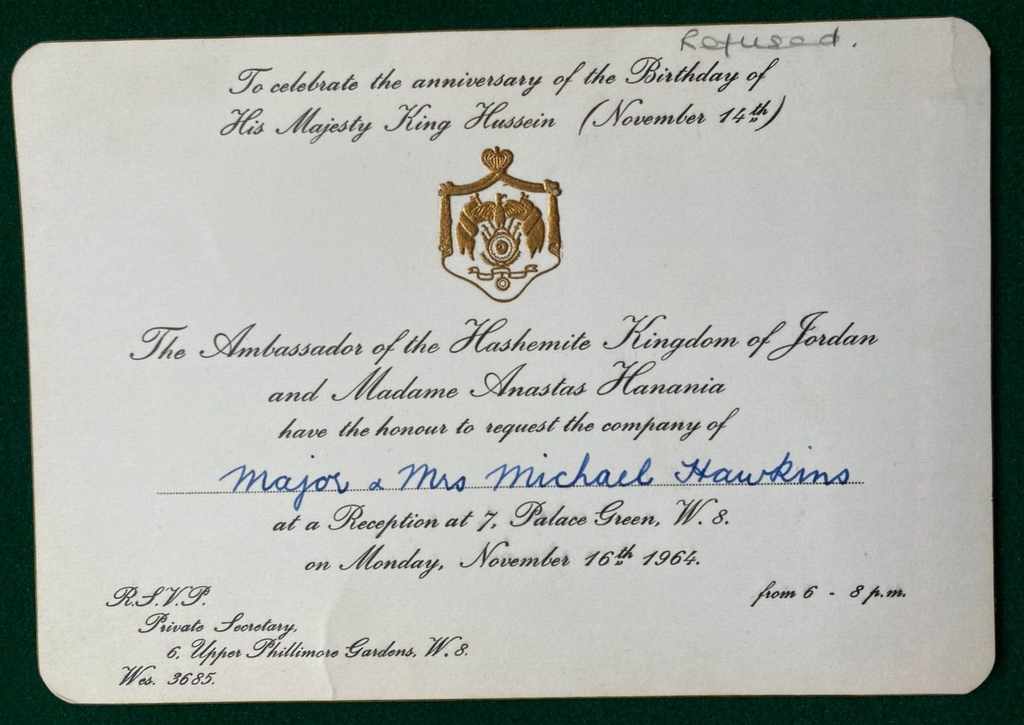 Refused.
To celebrate the anniversary of the Birthday of
His Majesty King Hussein (November 14th)
The Ambassador of the Hashemite Kingdom of Jordan
and Madame Anastas Hanania
have the honour to request the company of
Major & Mrs Michael Hawkins
at a Reception at 7, Palace Green, W. 8.
on Monday, November 16th 1964.
from 6 - 8 p.m.
R.S.V.P.
Private Secretary,
6, Upper Phillimore Gardens, W. 8.
Wes. 3685.